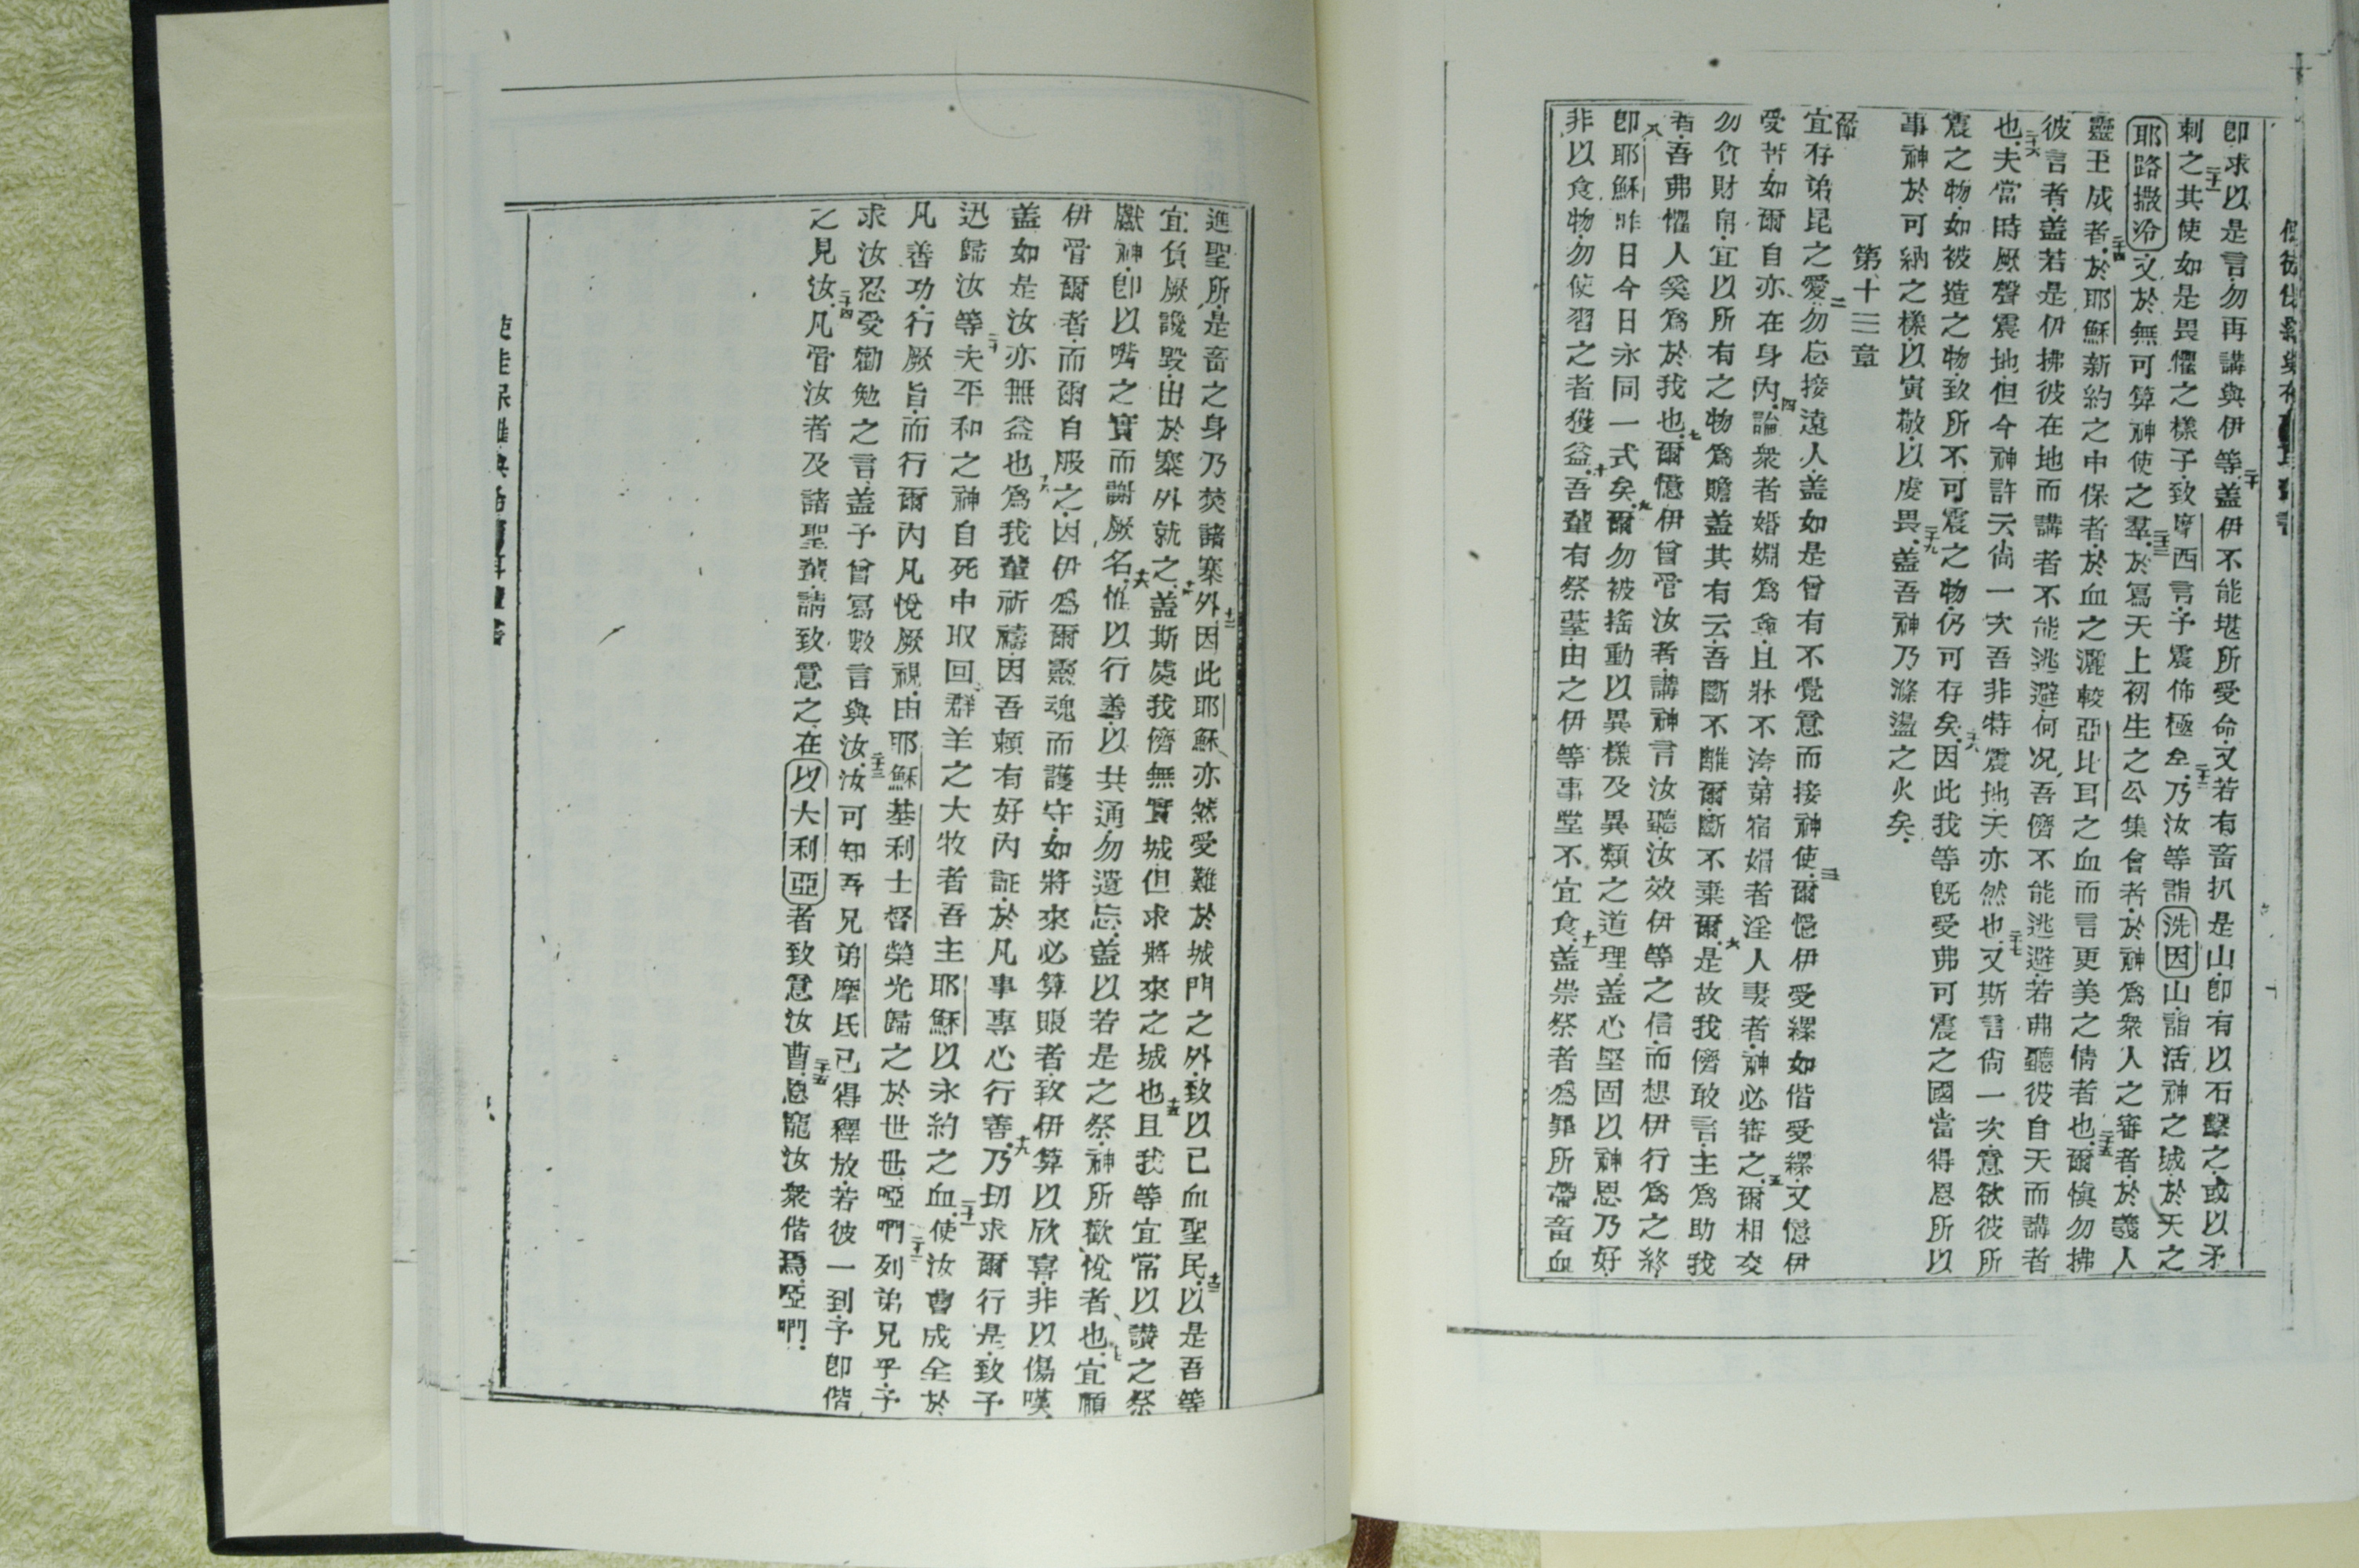 即求以是言勿再講與伊等二十蓋伊不能堪所受命又若有畜扒是山即有以石擊之或以矛
刺之二十一其使如是畏懼之樣子致摩西言予震怖極矣二十二乃汝等詣洗因山詣活神之城於天之
耶路撒冷又於無可算神使之羣二十三於寫天上初生之公集會者於神為衆人之審者於義人
靈玊成者二十四於耶穌新約之中保者於血之灑較亞比耳之血而言更美之情者也二十五爾慎勿拂
彼言者蓋若是伊拂彼在地而講者不能逃避何況吾儕不能逃避若弗聽彼自天而講者
也二十六夫當時厥聲震地但今神許云尚一次吾非特震地天亦然也二十七又斯言尚一次意欲彼所
震之物如被造之物致所不可震之物仍可存矣二十八因此我等既受弗可震之國當得恩所以
事神於可納之樣以寅敬以虔畏二十九蓋吾神乃滌盪之火矣
第十三章
一節宜存弟昆之愛二勿忘接遠人蓋如是曾有不覺意而接神使三爾憶伊受縲如偕受縲又憶伊
受苦如爾自亦在身內四論衆者婚姻為尊且牀不洿第宿娼者淫人妻者神必審之五爾相交
勿貪財帛宜以所有之物為贍蓋其有云吾斷不離爾斷不棄爾六是故我儕敢言主為助我
者吾弗懼人奚為於我也七爾憶伊曾管汝者講神言汝聽汝效伊等之信而想伊行為之終
八即耶穌昨日今日永同一式矣九爾勿被搖動以異樣及異類之道理蓋心堅固以神恩乃好
非以食物勿使習之者獲益十吾輩有祭臺由之伊等事堂不宜食十一蓋祟祭者為罪所帶畜血
進聖所是畜之身乃焚諸寨外十二因此耶穌亦然受難於城門之外致以己血聖民十三以是吾等
宜負厥譏毀出於寨外就之十四蓋斯處我儕無實城但求將來之城也十五且我等宜常以讚之祭
獻神即以嘴之實而謝厥名十六惟以行善以共通勿遺忘蓋以若是之祭神所歡悅者也十七宜順
伊管爾者而爾自服之因伊為爾靈魂而護守如將來必算賬者致伊算以欣喜非以傷嘆
蓋如是汝亦無益也十八為我輩祈禱因吾賴有好內証於凡事專心行善十九乃切求爾行是致予
迅歸汝等二十夫平和之神自死中取回群羊之大牧者吾主耶穌以永約之血二十一使汝曹成全於
凡善功行厥旨而行爾內凡悅厥視由耶穌基利士督榮光歸之於世世啞吶二十二列弟兄乎予
求汝忍受勸勉之言蓋予曾寫數言與汝二十三汝可知吾兄弟摩氏已得釋放若彼一到予即偕
之見汝二十四凡管汝者及諸聖輩請致意之在以大利亞者致意汝曹二十五恩寵汝衆偕焉啞吶